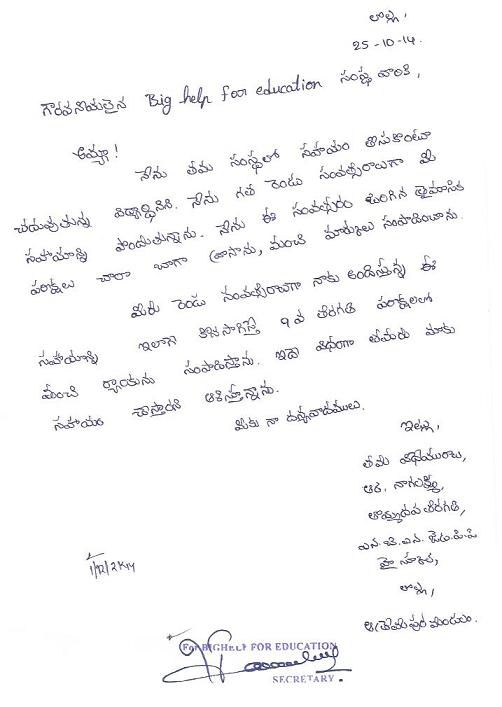 లొల్ల,
25-10-14.
గౌరవనీయులైన Big help for education సంస్థ వారికి,
అమ్మా!
నేను తమ సంస్థలో సహాయం తీసుకొంటూ
చదువుతున్న విద్యార్థినిని. నేను గత రెండు సంవత్సరాలుగా మీ
సహాయాన్ని పొందుతున్నాను. నేను ఈ సంవత్సరం జరిగిన త్రైమాసిక
పరీక్షలు చాలా బాగా వ్రాసాను, మంచి మార్కులు సంపాదించాను.
మీరు రెండు సంవత్సరాలుగా నాకు అందిస్తున్న ఈ
సహాయాన్ని ఇలానే కొనసాగిస్తే 9వ తరగతి పరీక్షలలో
మంచి ర్యాంకును సంపాదిస్తాను. ఇదే విధంగా తమరు మాకు
సహాయం చేస్తారని ఆశిస్తున్నాను.
మీకు నా ధన్యవాదములు.
ఇట్లు,
తమ విధేయురాలు,
ఆర్. నాగలక్ష్మి,
తొమ్మిదవ తరగతి,
ఎన్.బి.ఎన్. జెడ్.పి.పి
హై స్కూల్,
లొల్ల,
ఆత్రేయపుర మండలం.
1/12/2K14
For BIGHELP FOR EDUCATION
SECRETARY.